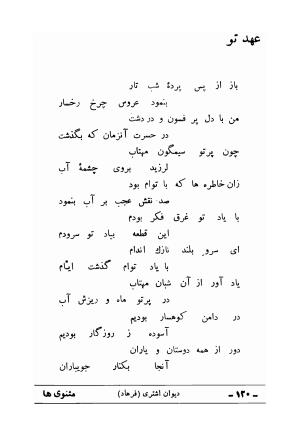 عهد تو
باز از پس پردهٔ شب تار
بنمود عروس چرخ رخسار
من با دل پر فسون و در دشت
در حسرت آنزمان که بگذشت
چون پرتو سیمگون مهتاب
لرزید بروی چشمهٔ آب
زان خاطره ها که با توام بود
صد نقش عجب بر آب بنمود
با یاد تو غرق فکر بودم
این قطعه بیاد تو سرودم
ای سرو بلند نازک اندام
با یاد توام گذشت ایام
یاد آور از آن شبان مهتاب
در پرتو ماه و ریزش آب
در دامن کوهسار بودیم
آسوده ز روزگار بودیم
دور از همه دوستان و یاران
آنجا بکنار جویباران
مثنوی ها دیوان اشتری (فرهاد) ـ ۱۲۰ ـ